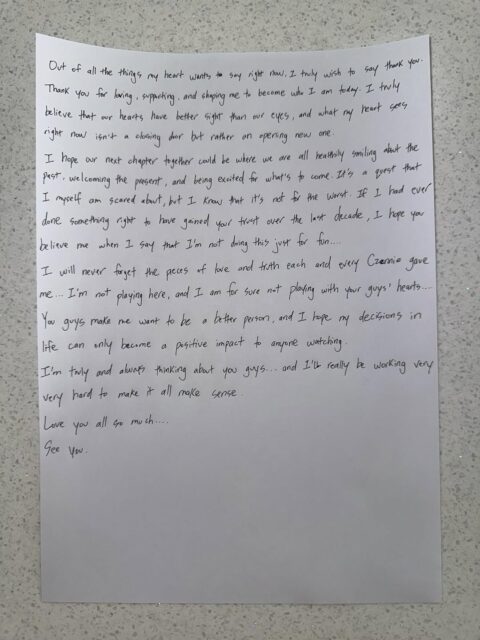 Out of all the things my heart wants to say right now, I truly wish to say thank you.
Thank you for loving, supporting, and shaping me to become who I am today. I truly
believe that our hearts have better sight than our eyes, and what my heart sees
right now isn't a closing door but rather an opening new one.
I hope our next chapter together could be where we are all heathily smiling about the
past, welcoming the present, and being excited for what's to come. It's a quest that
I myself am scared about, but I know that it's not for the worst. If I had ever
done something right to have gained your trust over the last decade, I hope you
believe me when I say that I'm not doing this just for fun....
I will never forget the peices of love and truth each and every Czennie gave
me... I'm not playing here, and I am for sure not playing with your guys' hearts....
You guys make me want to be a better person, and I hope my decisions in
life can only become a positive impact to anyone watching.
I'm truly and always thinking about you guys... and I'll really be working very
very hard to make it all make sense.
Love you all so much....
See you.